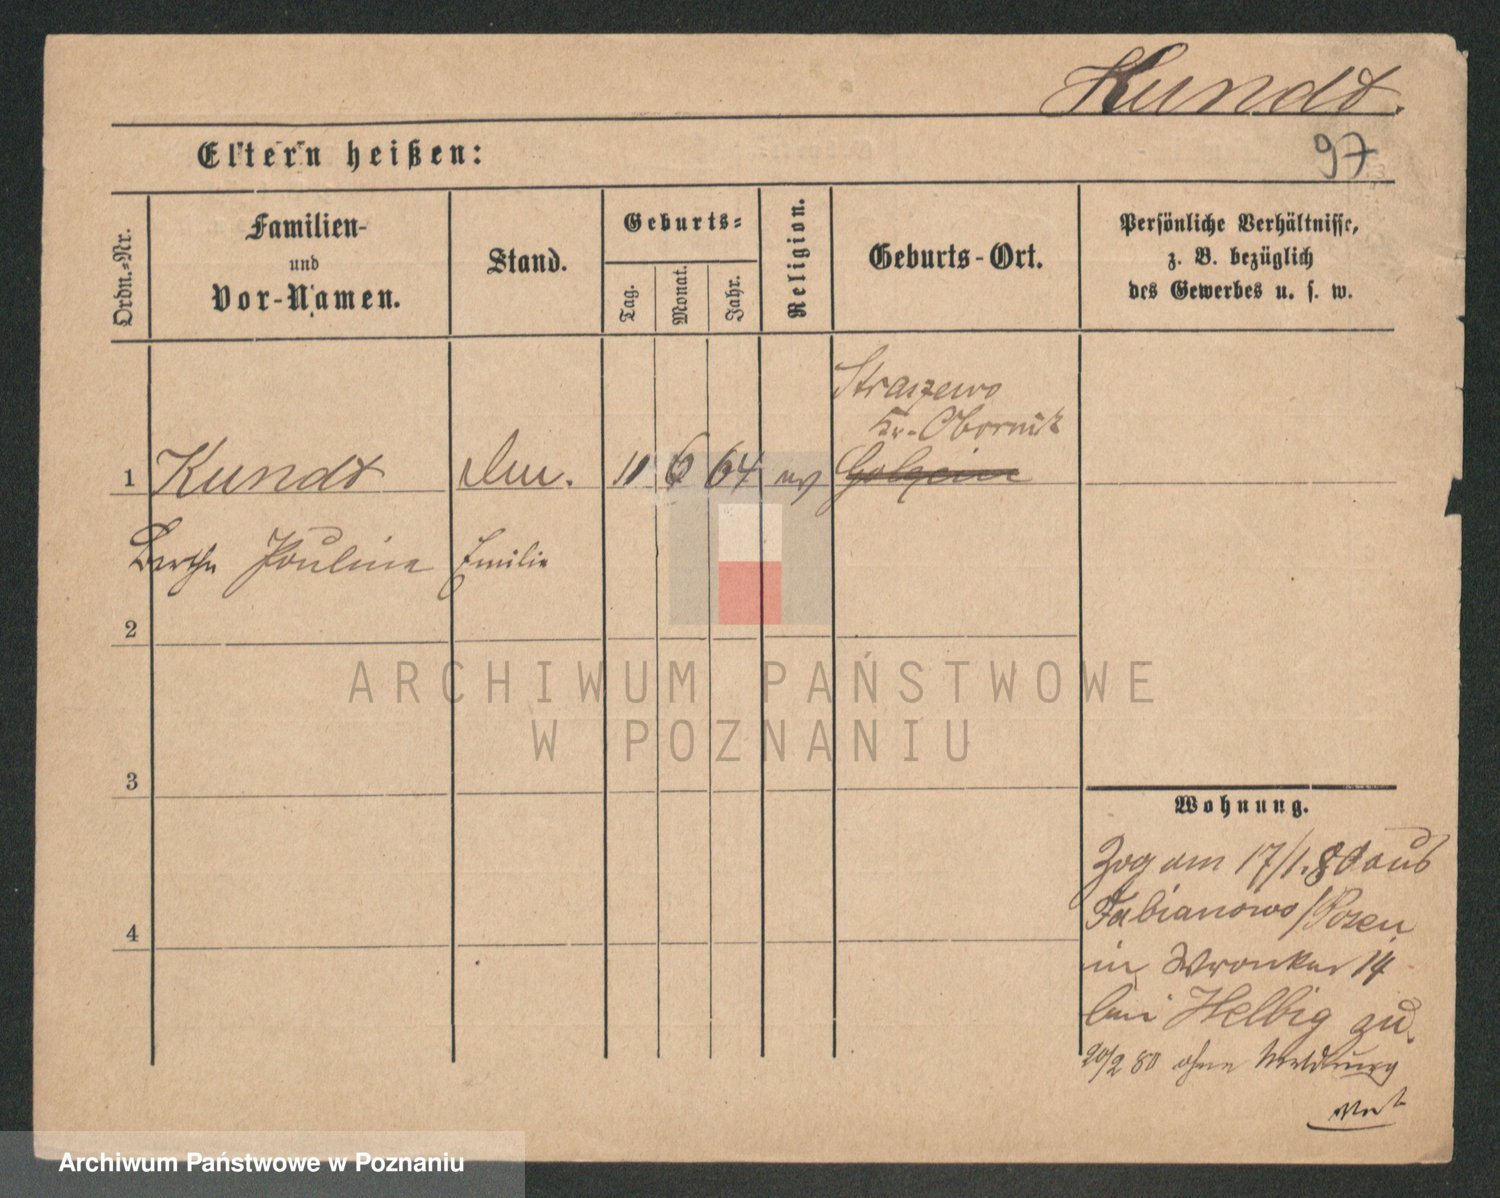 Kundt.
97
Eltern heißen:
Ordn.-Nr.
Familien-
und
Vor-Namen.
Stand.
Geburts-
Tag.
Monat.
Jahr.
Religion.
Geburts-Ort.
Persönliche Verhältnisse,
z. B. bezüglich
des Gewerbes u. s. w.
Kr. Obornik
1 Kundt 11 6 64 ev
Bertha Pauline Emilie
2
3
4
Wohnung.
Zog am 17/1. 80 aus
Fabianowo/Posen
in Wronker 14
bei Helbig zu.
20/2 80 ohne Meldung
ARCHIWUM PAŃSTWOWE
W POZNANIU
Archiwum Państwowe w Poznaniu